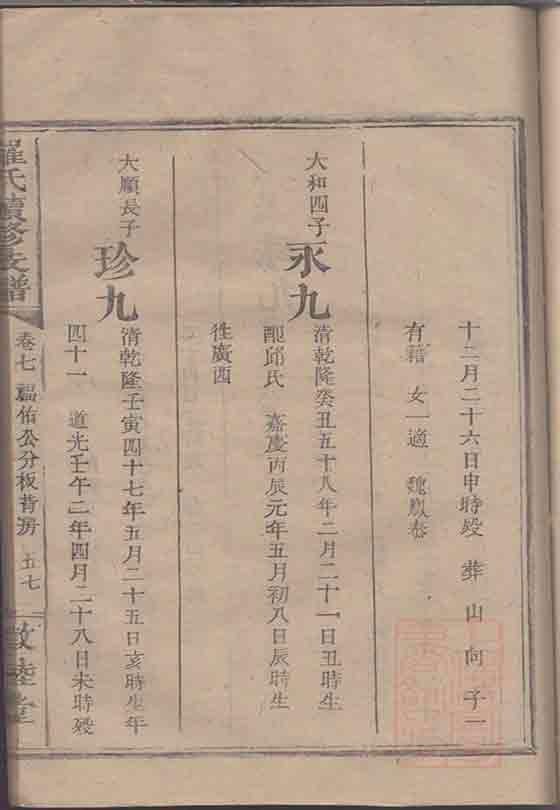 十二月二十六日申時殁 葬 山 向 子一
有籍 女一適 魏
大和四子
永九
清乾隆癸丑五十八年二月二十一日丑時生
配邱氏 嘉慶丙辰元年五月初八日辰時生
徃廣西
大順長子
珍九
清乾隆壬寅四十七年五月二十五日亥時生年
四十一 道光壬午二年四月二十八日未時殁
羅氏續修支譜
卷七 福佑公分板背房 五七
敦睦堂